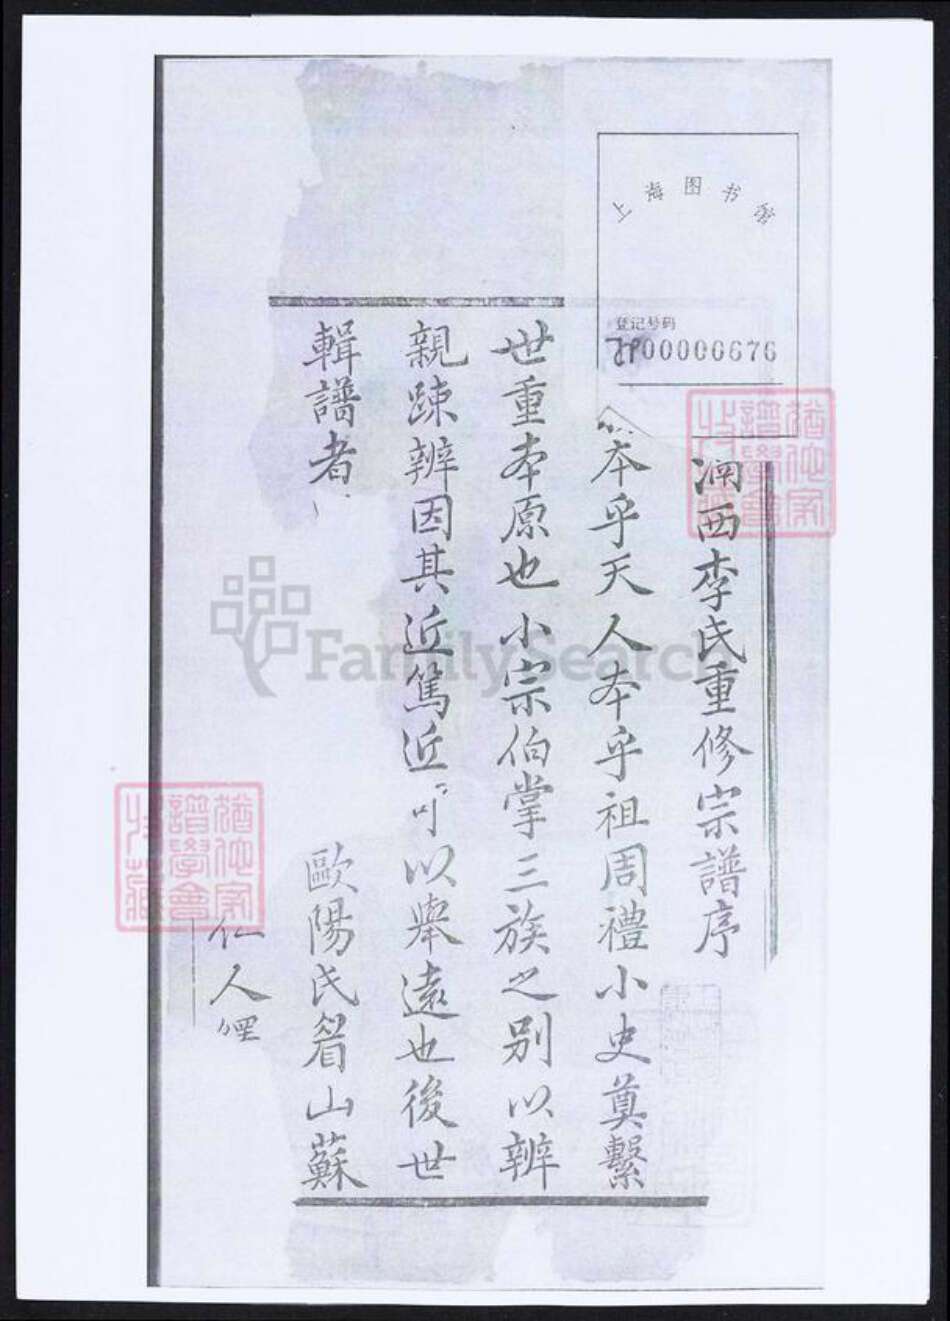 上海图书馆
登记号码
JP00000676
猶他家譜學會收藏
澗西李氏重修宗譜序
本乎天人本乎祖周禮小史奠繫
世重本原也小宗伯掌三族之別以辨
親疎辨因其近篤近以舉遠也後世
輯譜者歐陽氏眉山蘇
仁人
猶他家譜學會收藏
FamilySearch